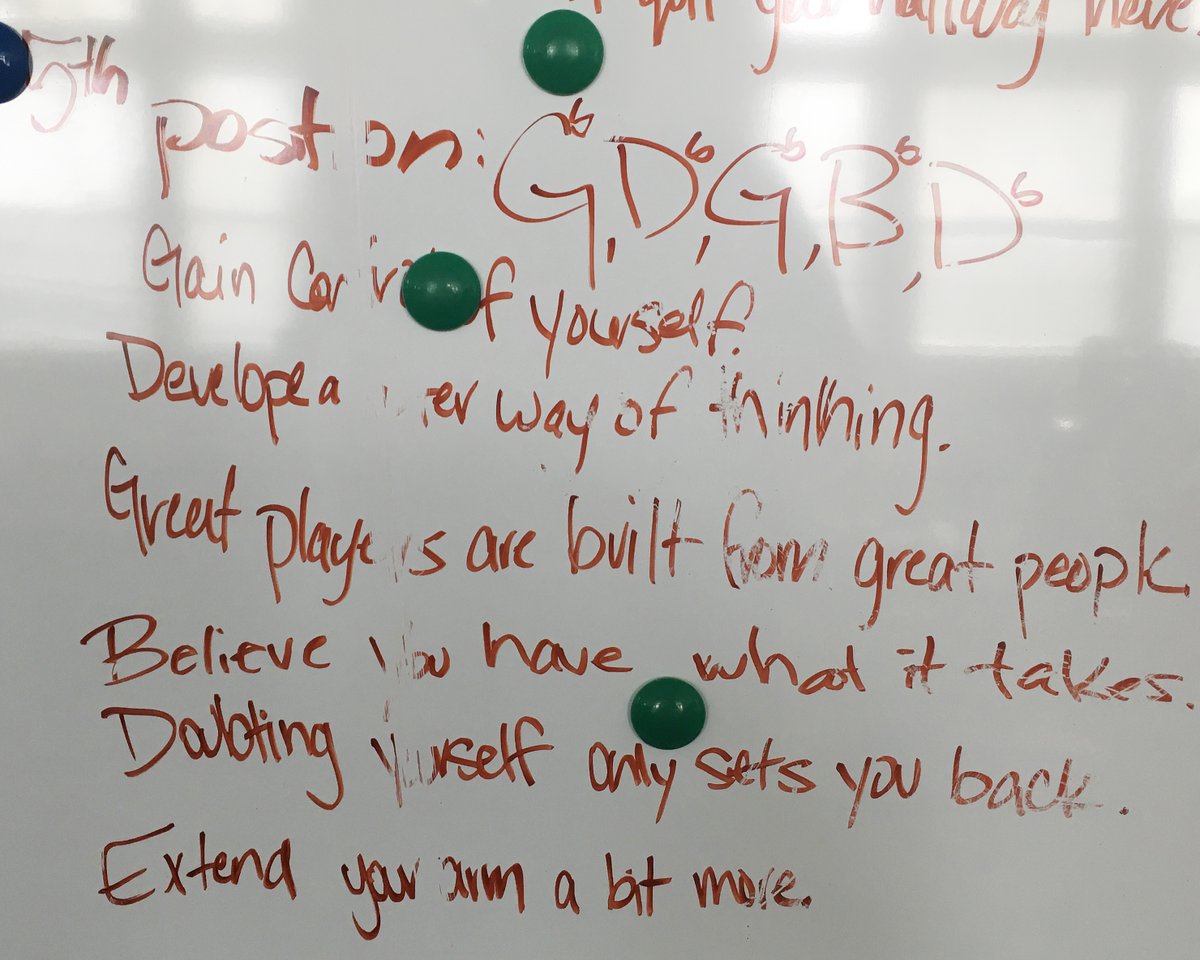 you halfway
5th position: G⁶, D⁶, G⁶, B⁶, D⁶
Gain of yourself.
Develope a way of thinking.
Great players are built from great people.
Believe you have what it takes.
Doubting yourself only sets you back.
Extend your arm a bit more.